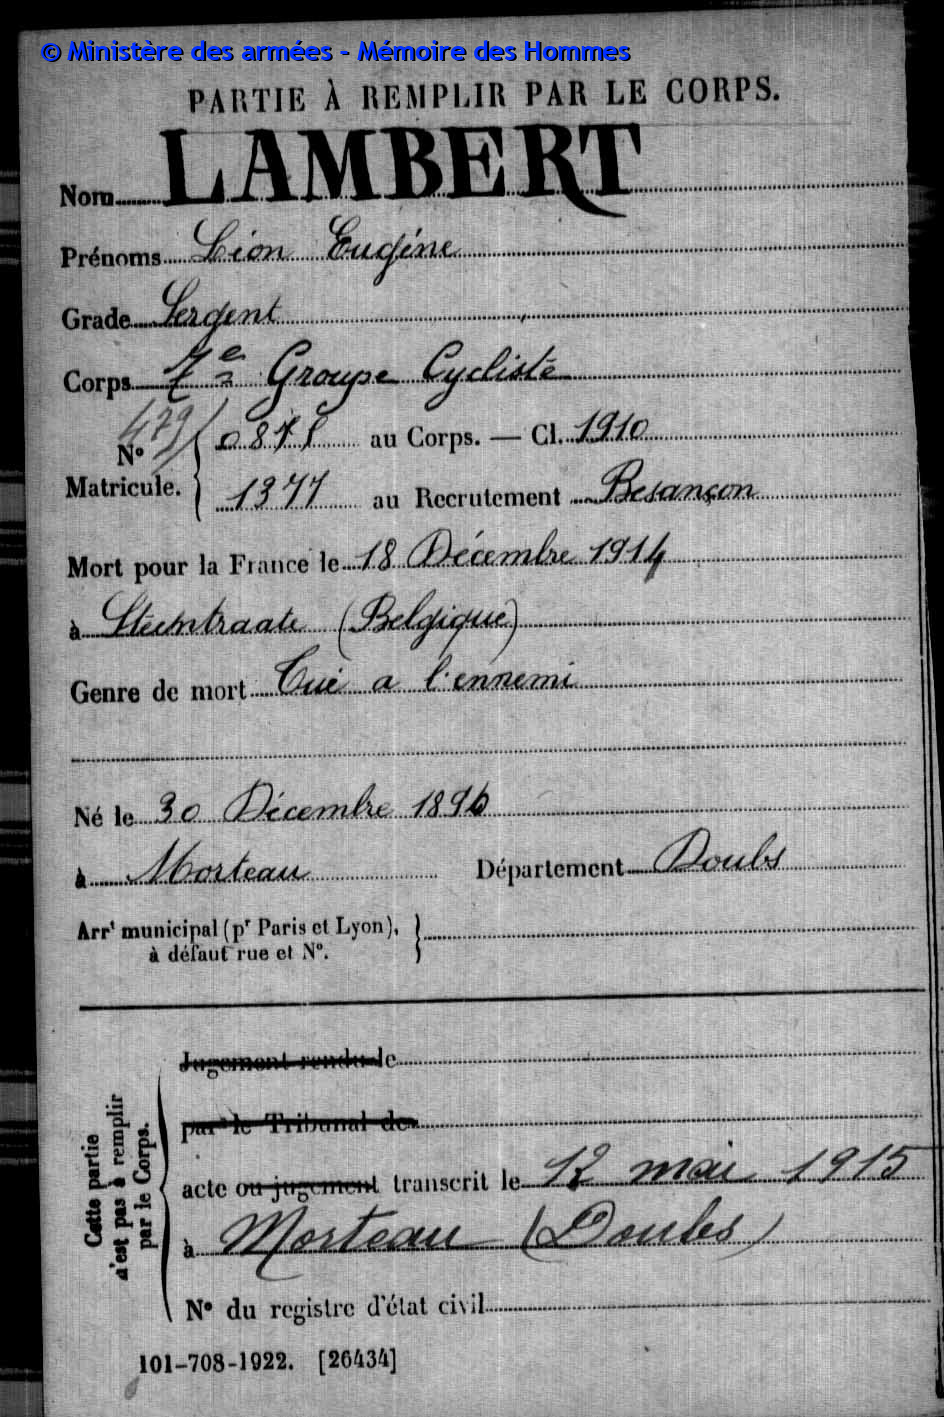 © Ministère des armées - Mémoire des Hommes
PARTIE À REMPLIR PAR LE CORPS.
Nom LAMBERT
Prénoms Léon Eugène
Grade Sergent
Corps 7e Groupe Cycliste
479
N° 0871 au Corps. — Cl. 1910
Matricule. 1377 au Recrutement Besançon
Mort pour la France le 18 Décembre 1914
à (Belgique)
Genre de mort Tué a l'ennemi
Né le 30 Décembre 1890
à Morteau Département Doubs
Arrt municipal (pr Paris et Lyon),
à défaut rue et N°.
Cette partie
n'est pas à remplir
par le Corps.
Jugement rendu le
par le Tribunal de
acte ou jugement transcrit le 12 mai 1915
à Morteau (Doubs)
N° du registre d'état civil
101-708-1922. [26434]